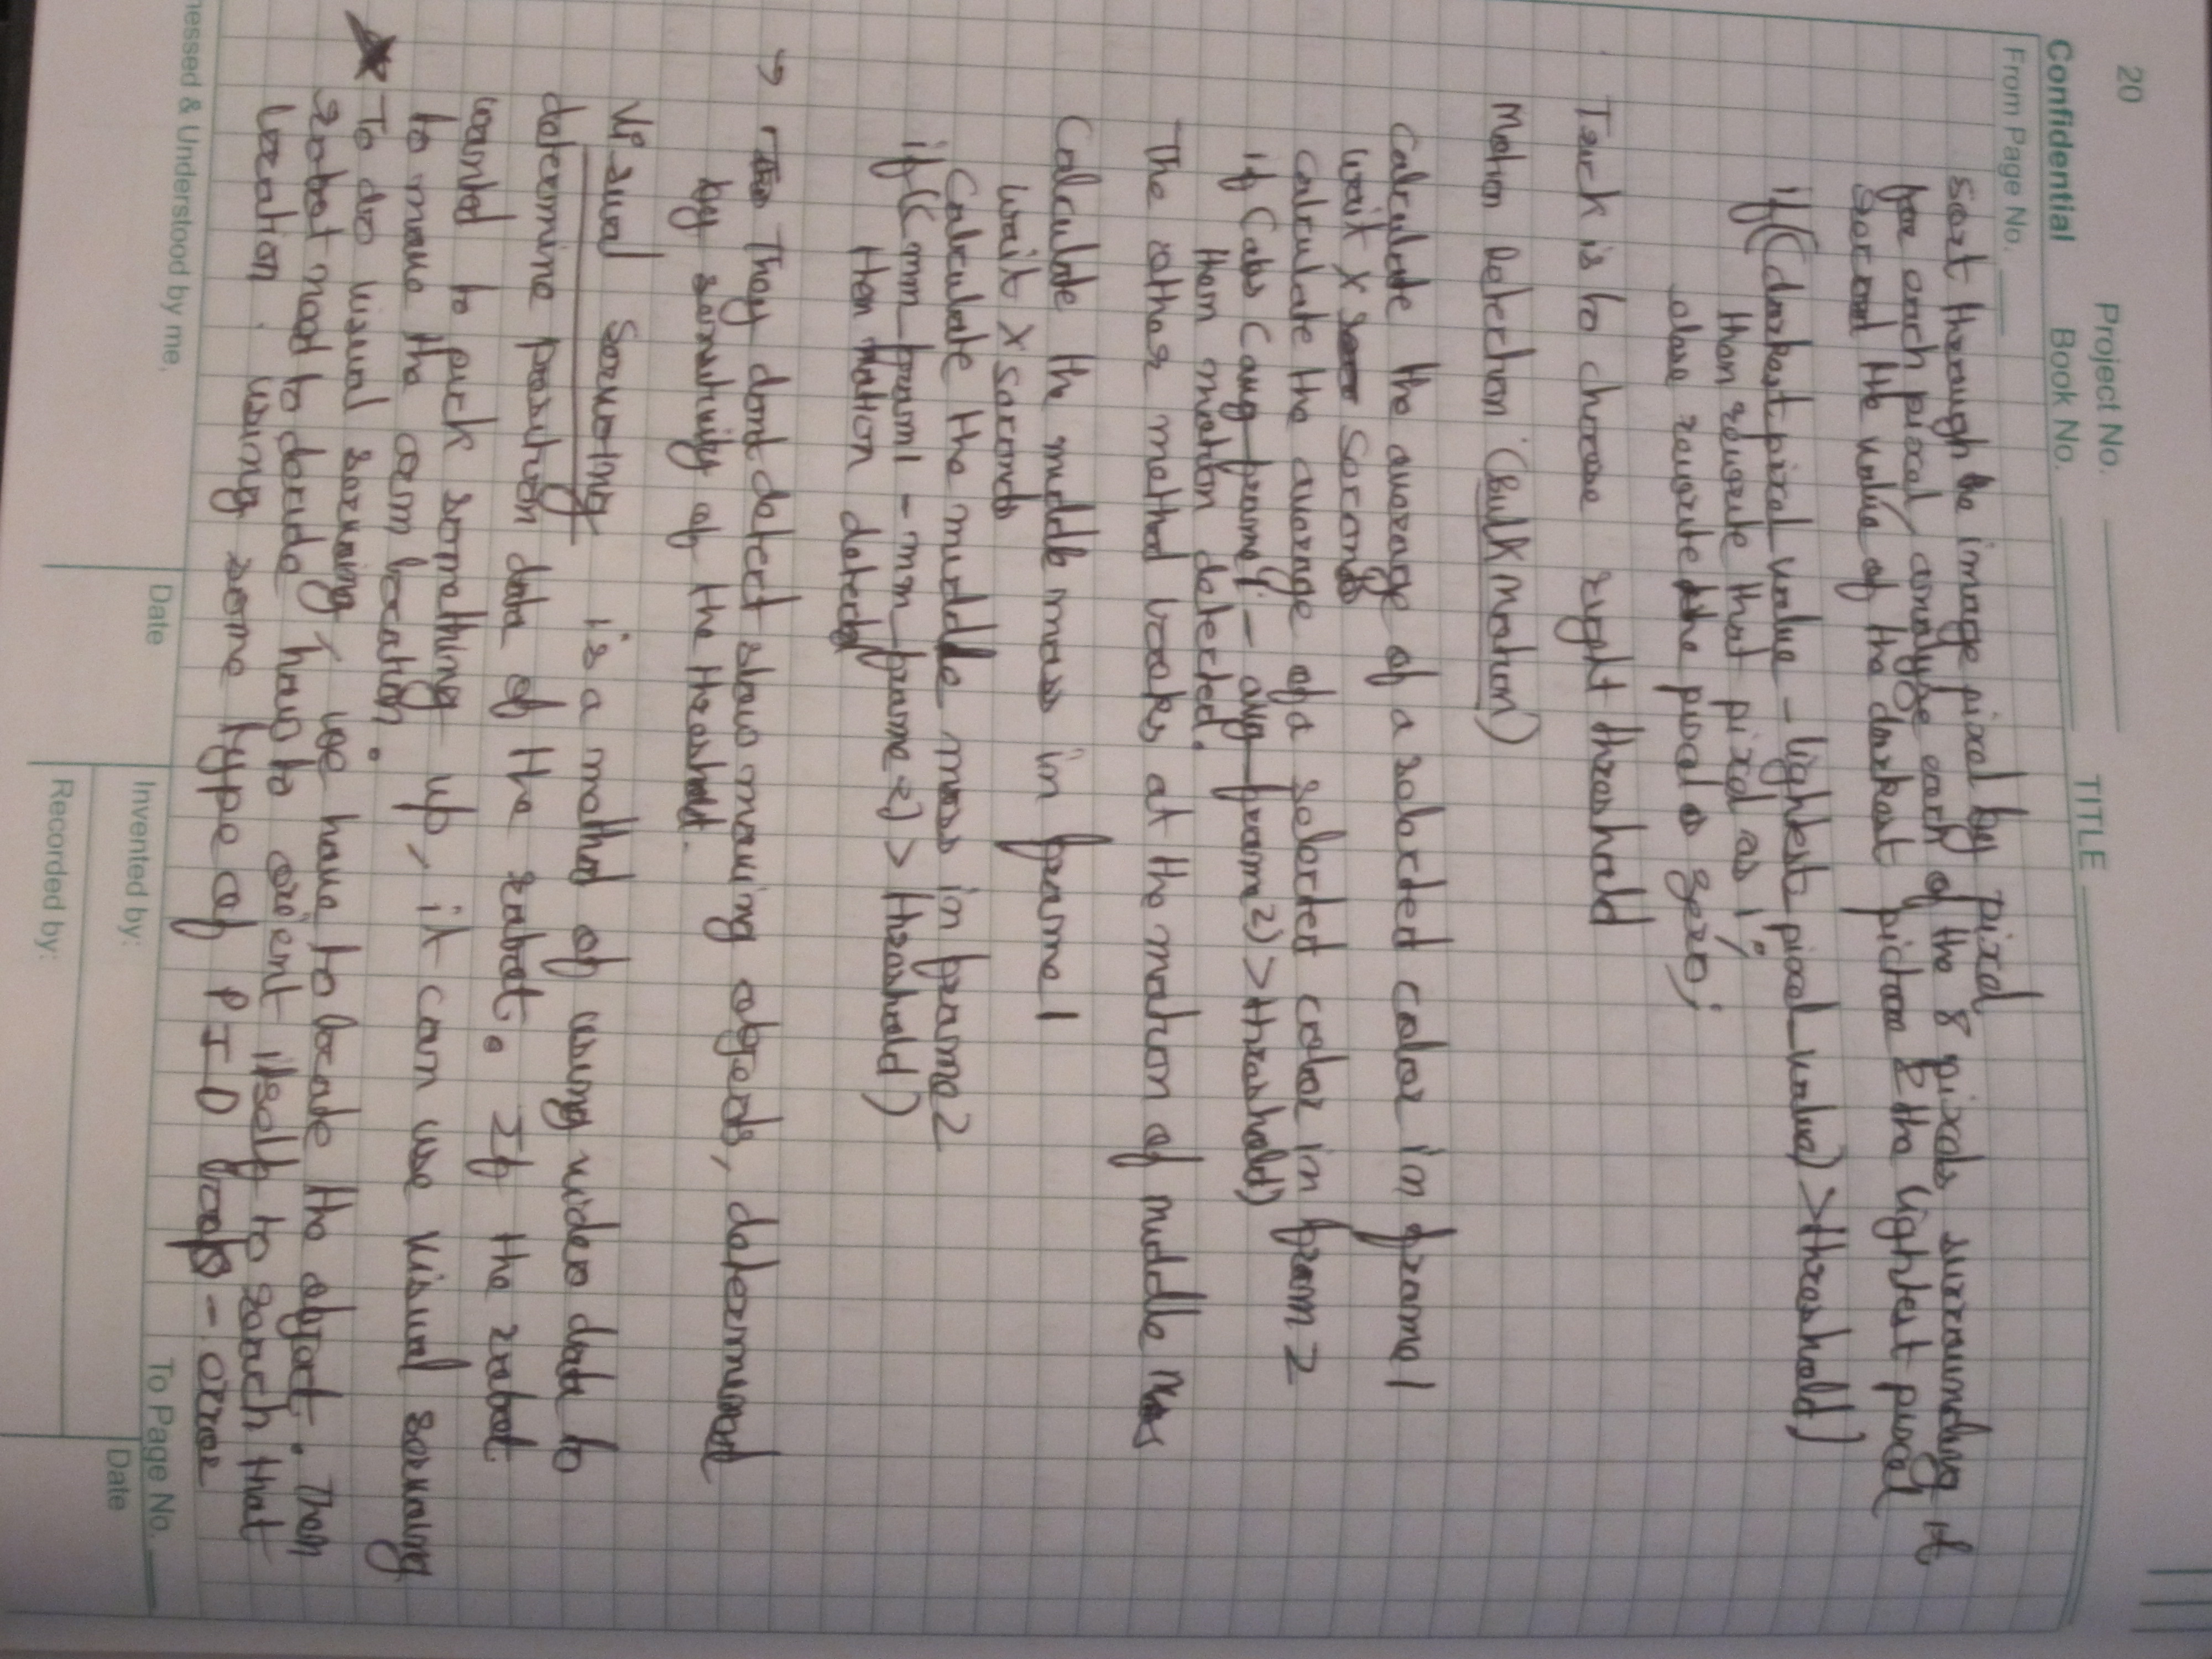 20
Project No.
Confidential Book No. TITLE
From Page No.
sort through the image pixel by pixel
for each pixel, analyze each of the 8 pixels surrounding it
record the value of the darkest picture & the lightest pixel
if (darkest pixel_value - lightest pixel_value) > threshold)
then rewrite that pixel as 1;
else rewrite the pixel as zero;
Trick is to choose right threshold
Motion Detection (Bulk Motion)
Calculate the average of a selected color in frame 1
wait X seconds
calculate the average of a selected color in fram 2
if (abs (avg-frame1 - avg-frame2) > threshold)
then motion detected.
The other method looks at the motion of middle mass
Calculate the middle mass in frame 1
wait X seconds
Calculate the middle mass in frame 2
if (mm_fram1 - mm_frame2) > threshold)
then motion detected
→ They dont detect slow moving objects, determined
by sensitivity of the threshold.
Visual Servoing is a method of using video data to
determine position data of the robot. If the robot
wanted to pick something up, it can use visual servoing
to move the arm location.
To do visual servoing, we have to locate the object. Then
robot need to decide how to orient itself to reach that
location. using some type of PID loops - error
nessed & Understood by me.
Date
Invented by:
Recorded by:
To Page No.
Date